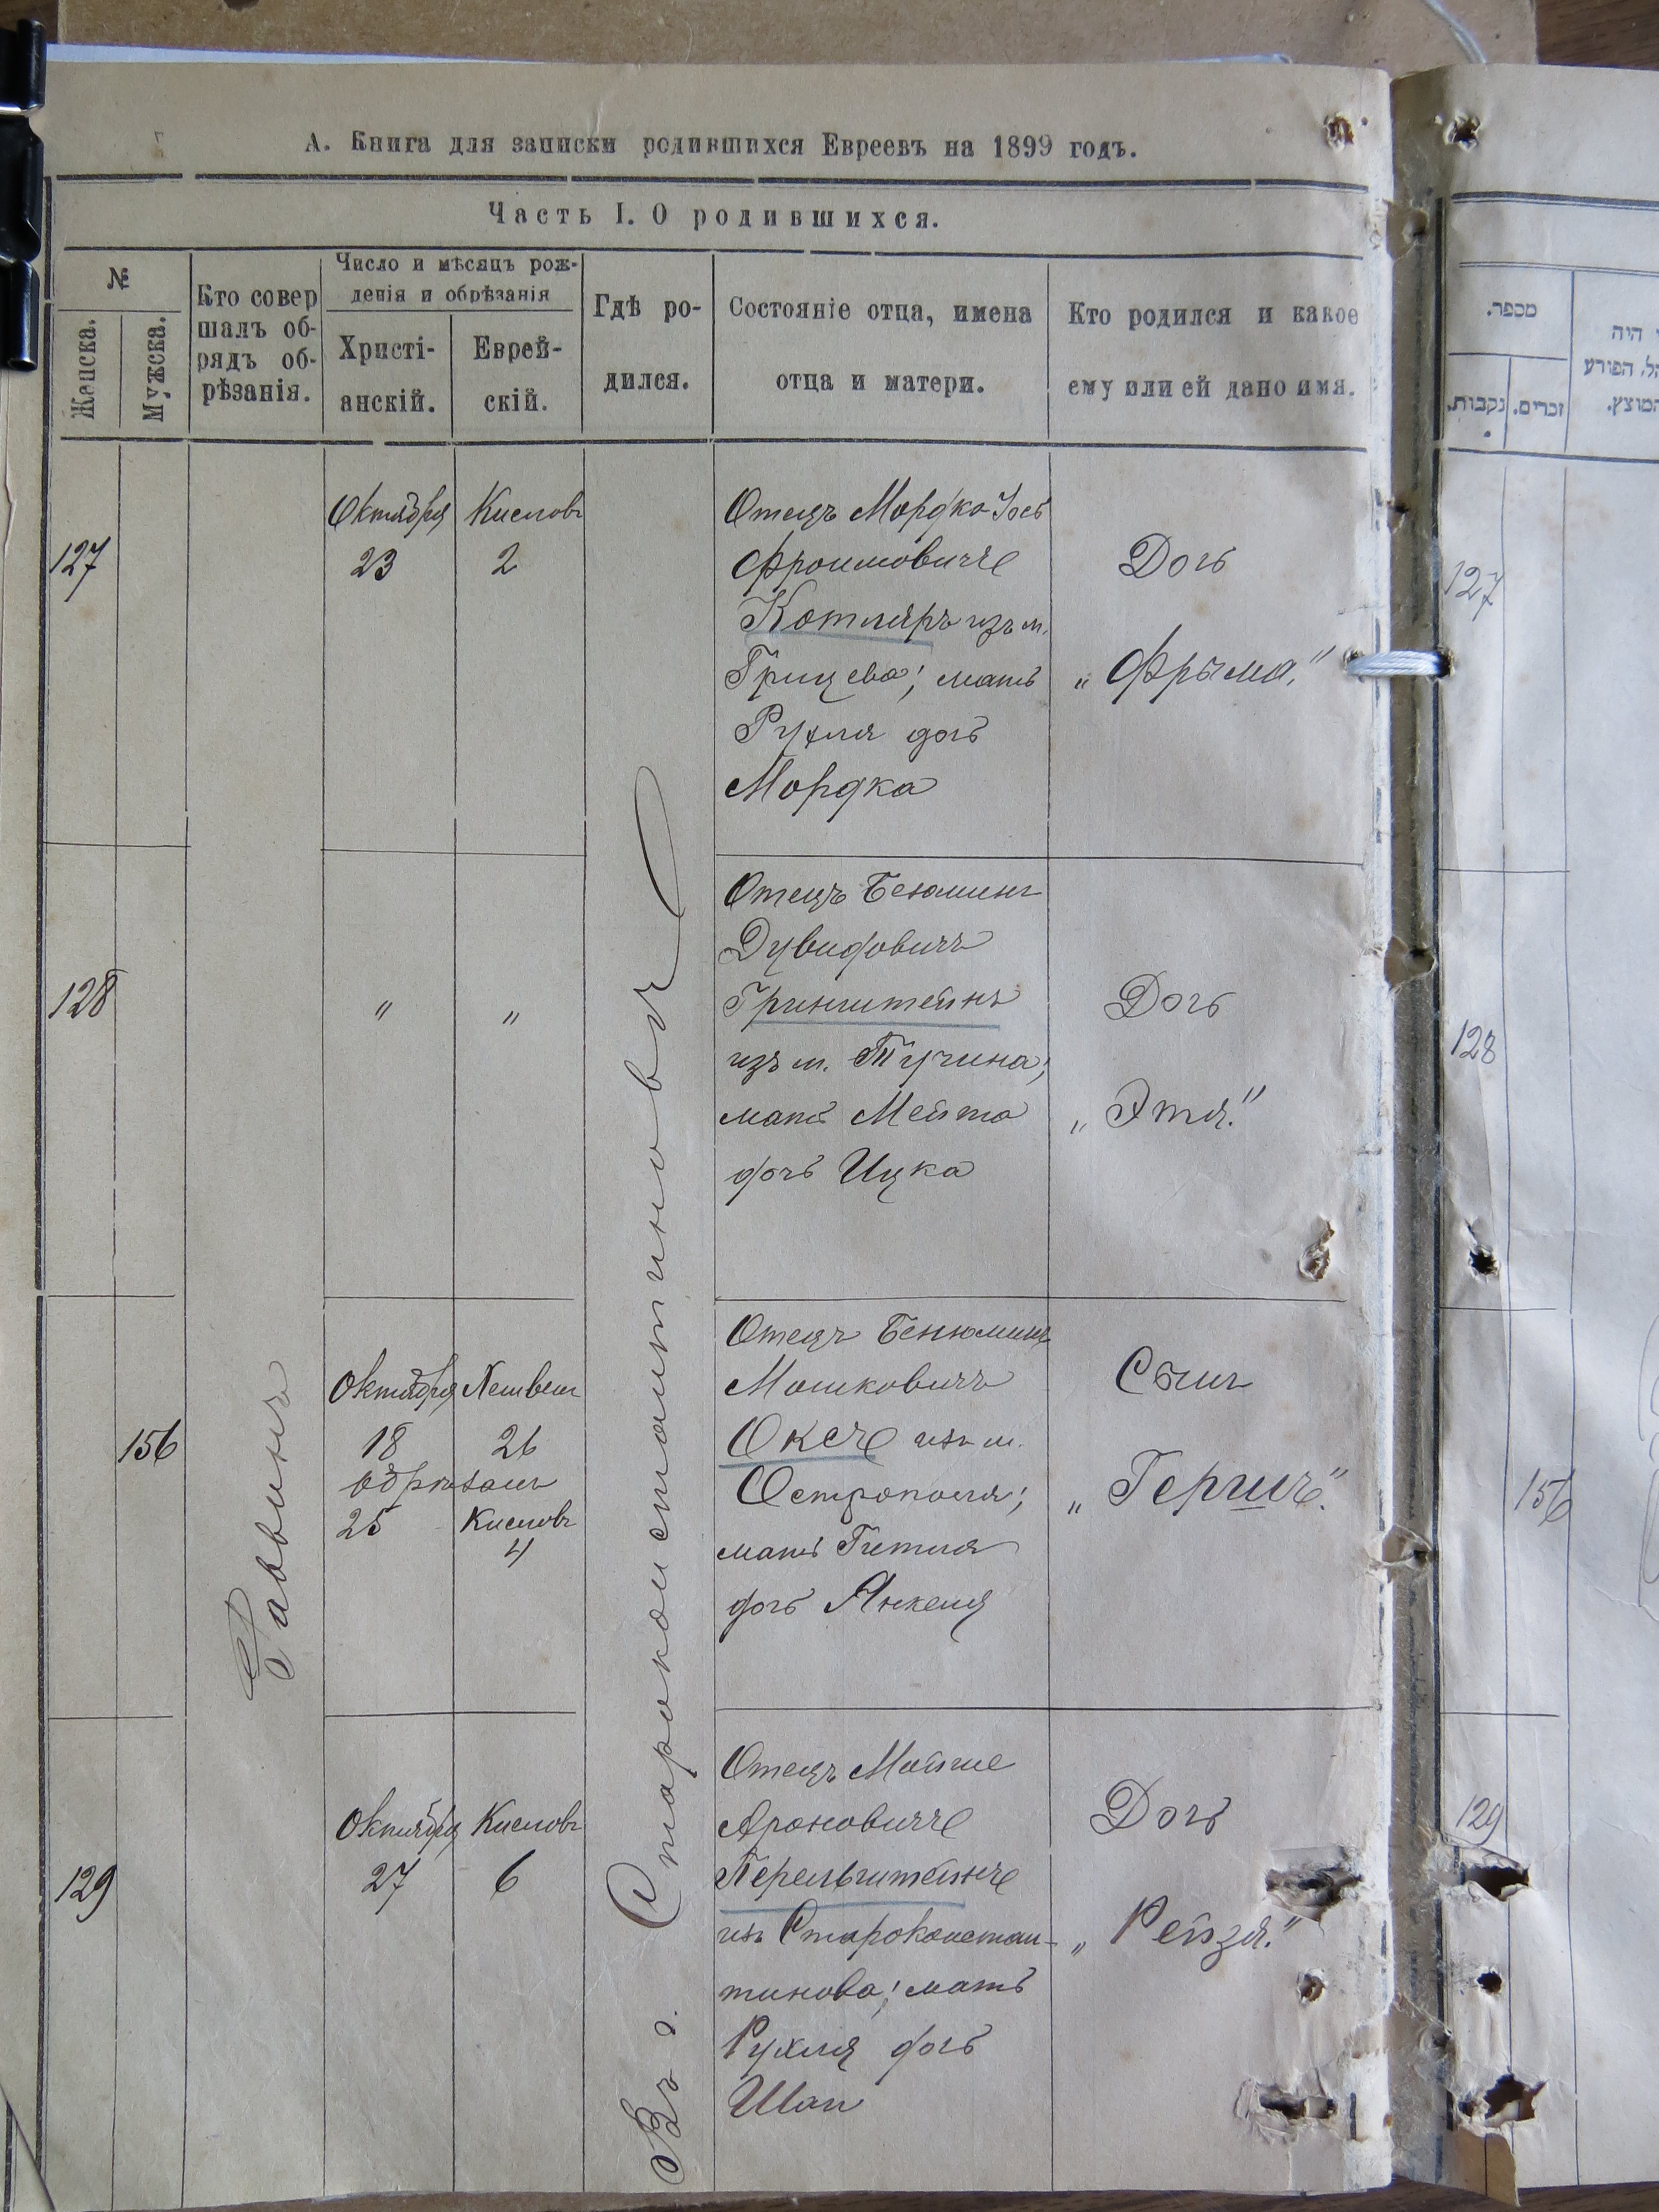 А. Книга для записки родившихся Евреевъ на 1899 годъ.
Часть I. О родившихся.
№
Женска.
Мужска.
Кто совер
шалъ об-
рядъ об-
рѣзанія.
Число и мѣсяцъ рож-
денія и обрѣзанія
Христі-
анскій.
Еврей-
скій.
Гдѣ ро-
дился.
Состояніе отца, имена
отца и матери.
Кто родился и какое
ему или ей дано имя.
מספר.
נקבות.
זכרים.
היה
הפורע
127
Октября
23
Кислов
2
Отецъ Мордко Іось
Фроимовичъ
Котляръ изъ м.
Грицева; мать
Рухля дочь
Мордка
Дочь
„Фрыма."
127
128
"
"
Отецъ Бенюминъ
Дувидовичъ
Гринштейнъ
изъ м. Тучина;
мать Мейта
дочь Ицка
Дочь
„Этя."
128
156
Раввинъ
Октября
18
обрѣзанъ
25
Хешвен
26
Кислов
4
Отецъ Бенюминъ
Мошковичъ
Оксъ изъ м.
Острополя;
мать Гитля
дочь Янкеля
Сынъ
„Гершъ".
156
129
Октября
27
Кислов
6
Въ г. Староконстантиновѣ
Отецъ Мойше
Ароновичъ
Перельштейнъ
изъ Староконстан-
тинова; мать
Рухля дочь
Шаи
Дочь
„Рейзя."
129